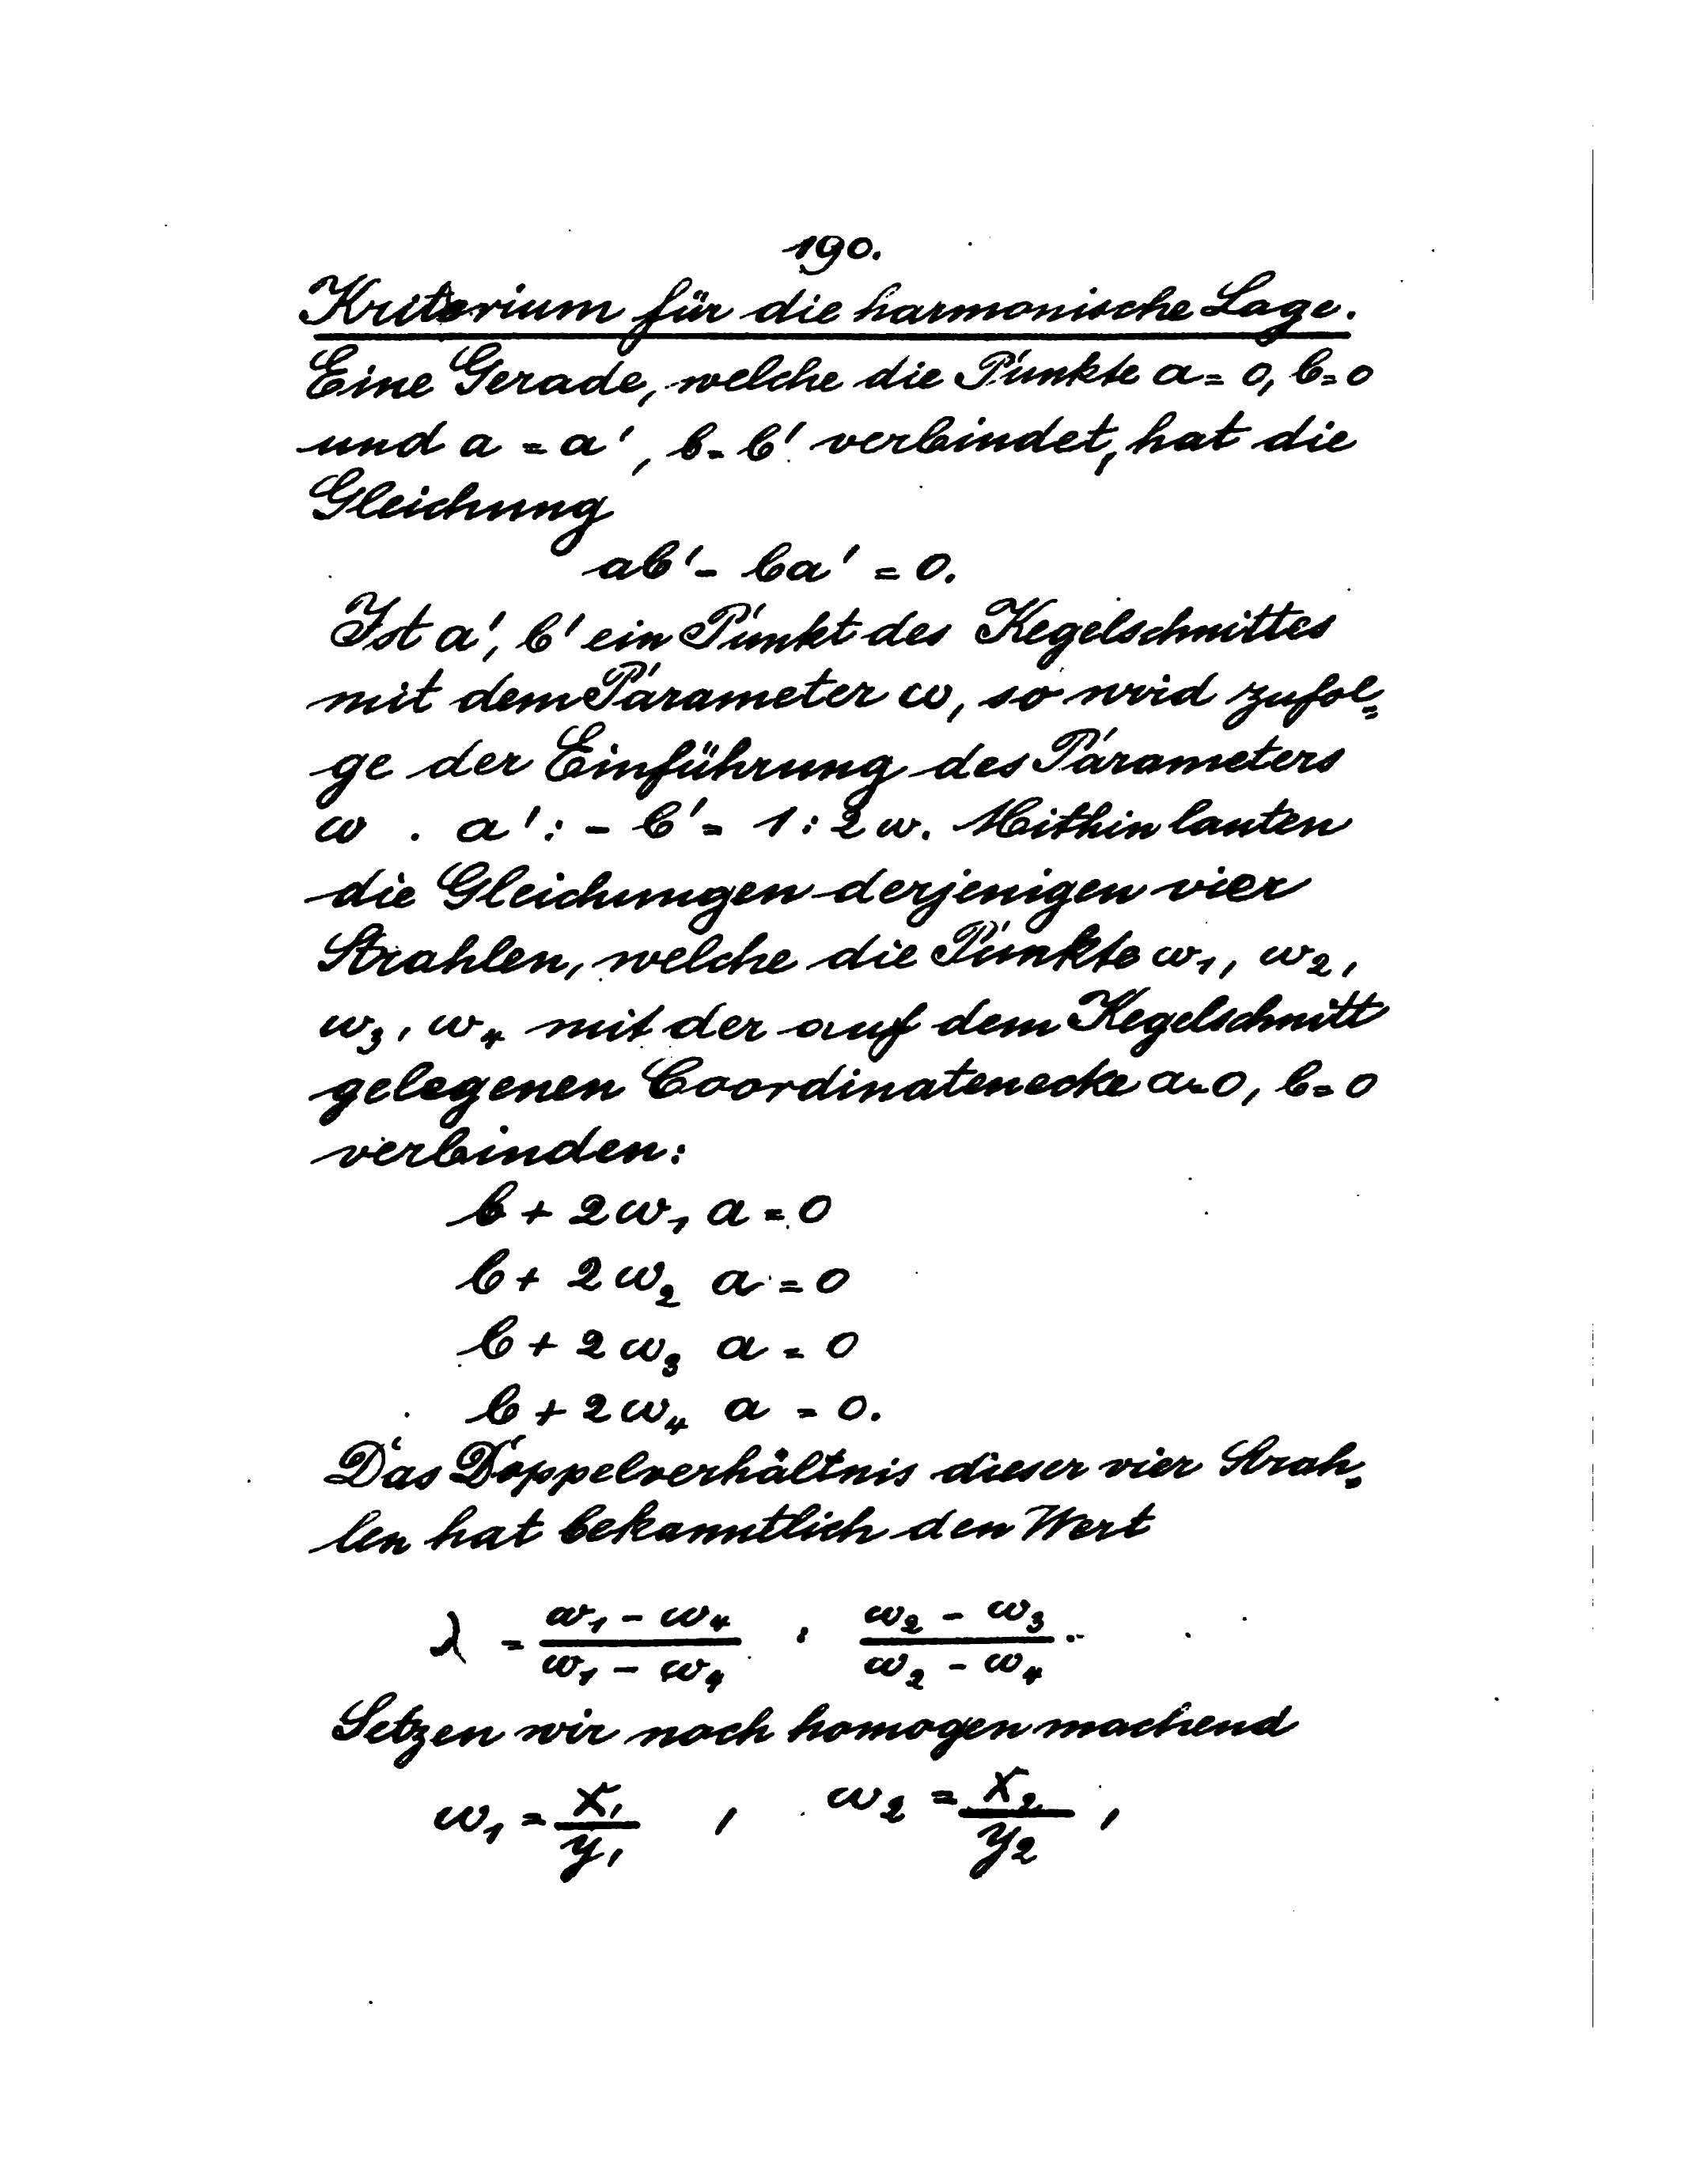 190.
Kriterium für die harmonische Lage.
Eine Gerade, welche die Punkte a = 0, b = 0
und a = a', b = b' verbindet, hat die
Gleichung
ab' - ba' = 0.
Ist a', b' ein Punkt des Kegelschnittes
mit dem Parameter ω, so wird zufol=
ge der Einführung des Parameters
ω . a' : - b' = 1 : 2ω. Mithin lauten
die Gleichungen derjenigen vier
Strahlen, welche die Punkte ω₁, ω₂,
ω₃, ω₄ mit der auf dem Kegelschnitt
gelegenen Coordinatenecke a = 0, b = 0
verbinden:
b + 2ω₁ a = 0
b + 2ω₂ a = 0
b + 2ω₃ a = 0
b + 2ω₄ a = 0.
Das Doppelverhältnis dieser vier Strah=
len hat bekanntlich den Wert
λ = (ω₁ - ω₄)/(ω₁ - ω₄) : (ω₂ - ω₃)/(ω₂ - ω₄).
Setzen wir noch homogen machend
ω₁ = x₁/y₁ , ω₂ = x₂/y₂ ,